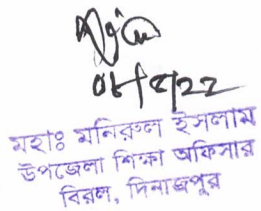 ০৮/৫/২২
মহাঃ মনিরুল ইসলাম
উপজেলা শিক্ষা অফিসার
বিরল, দিনাজপুর